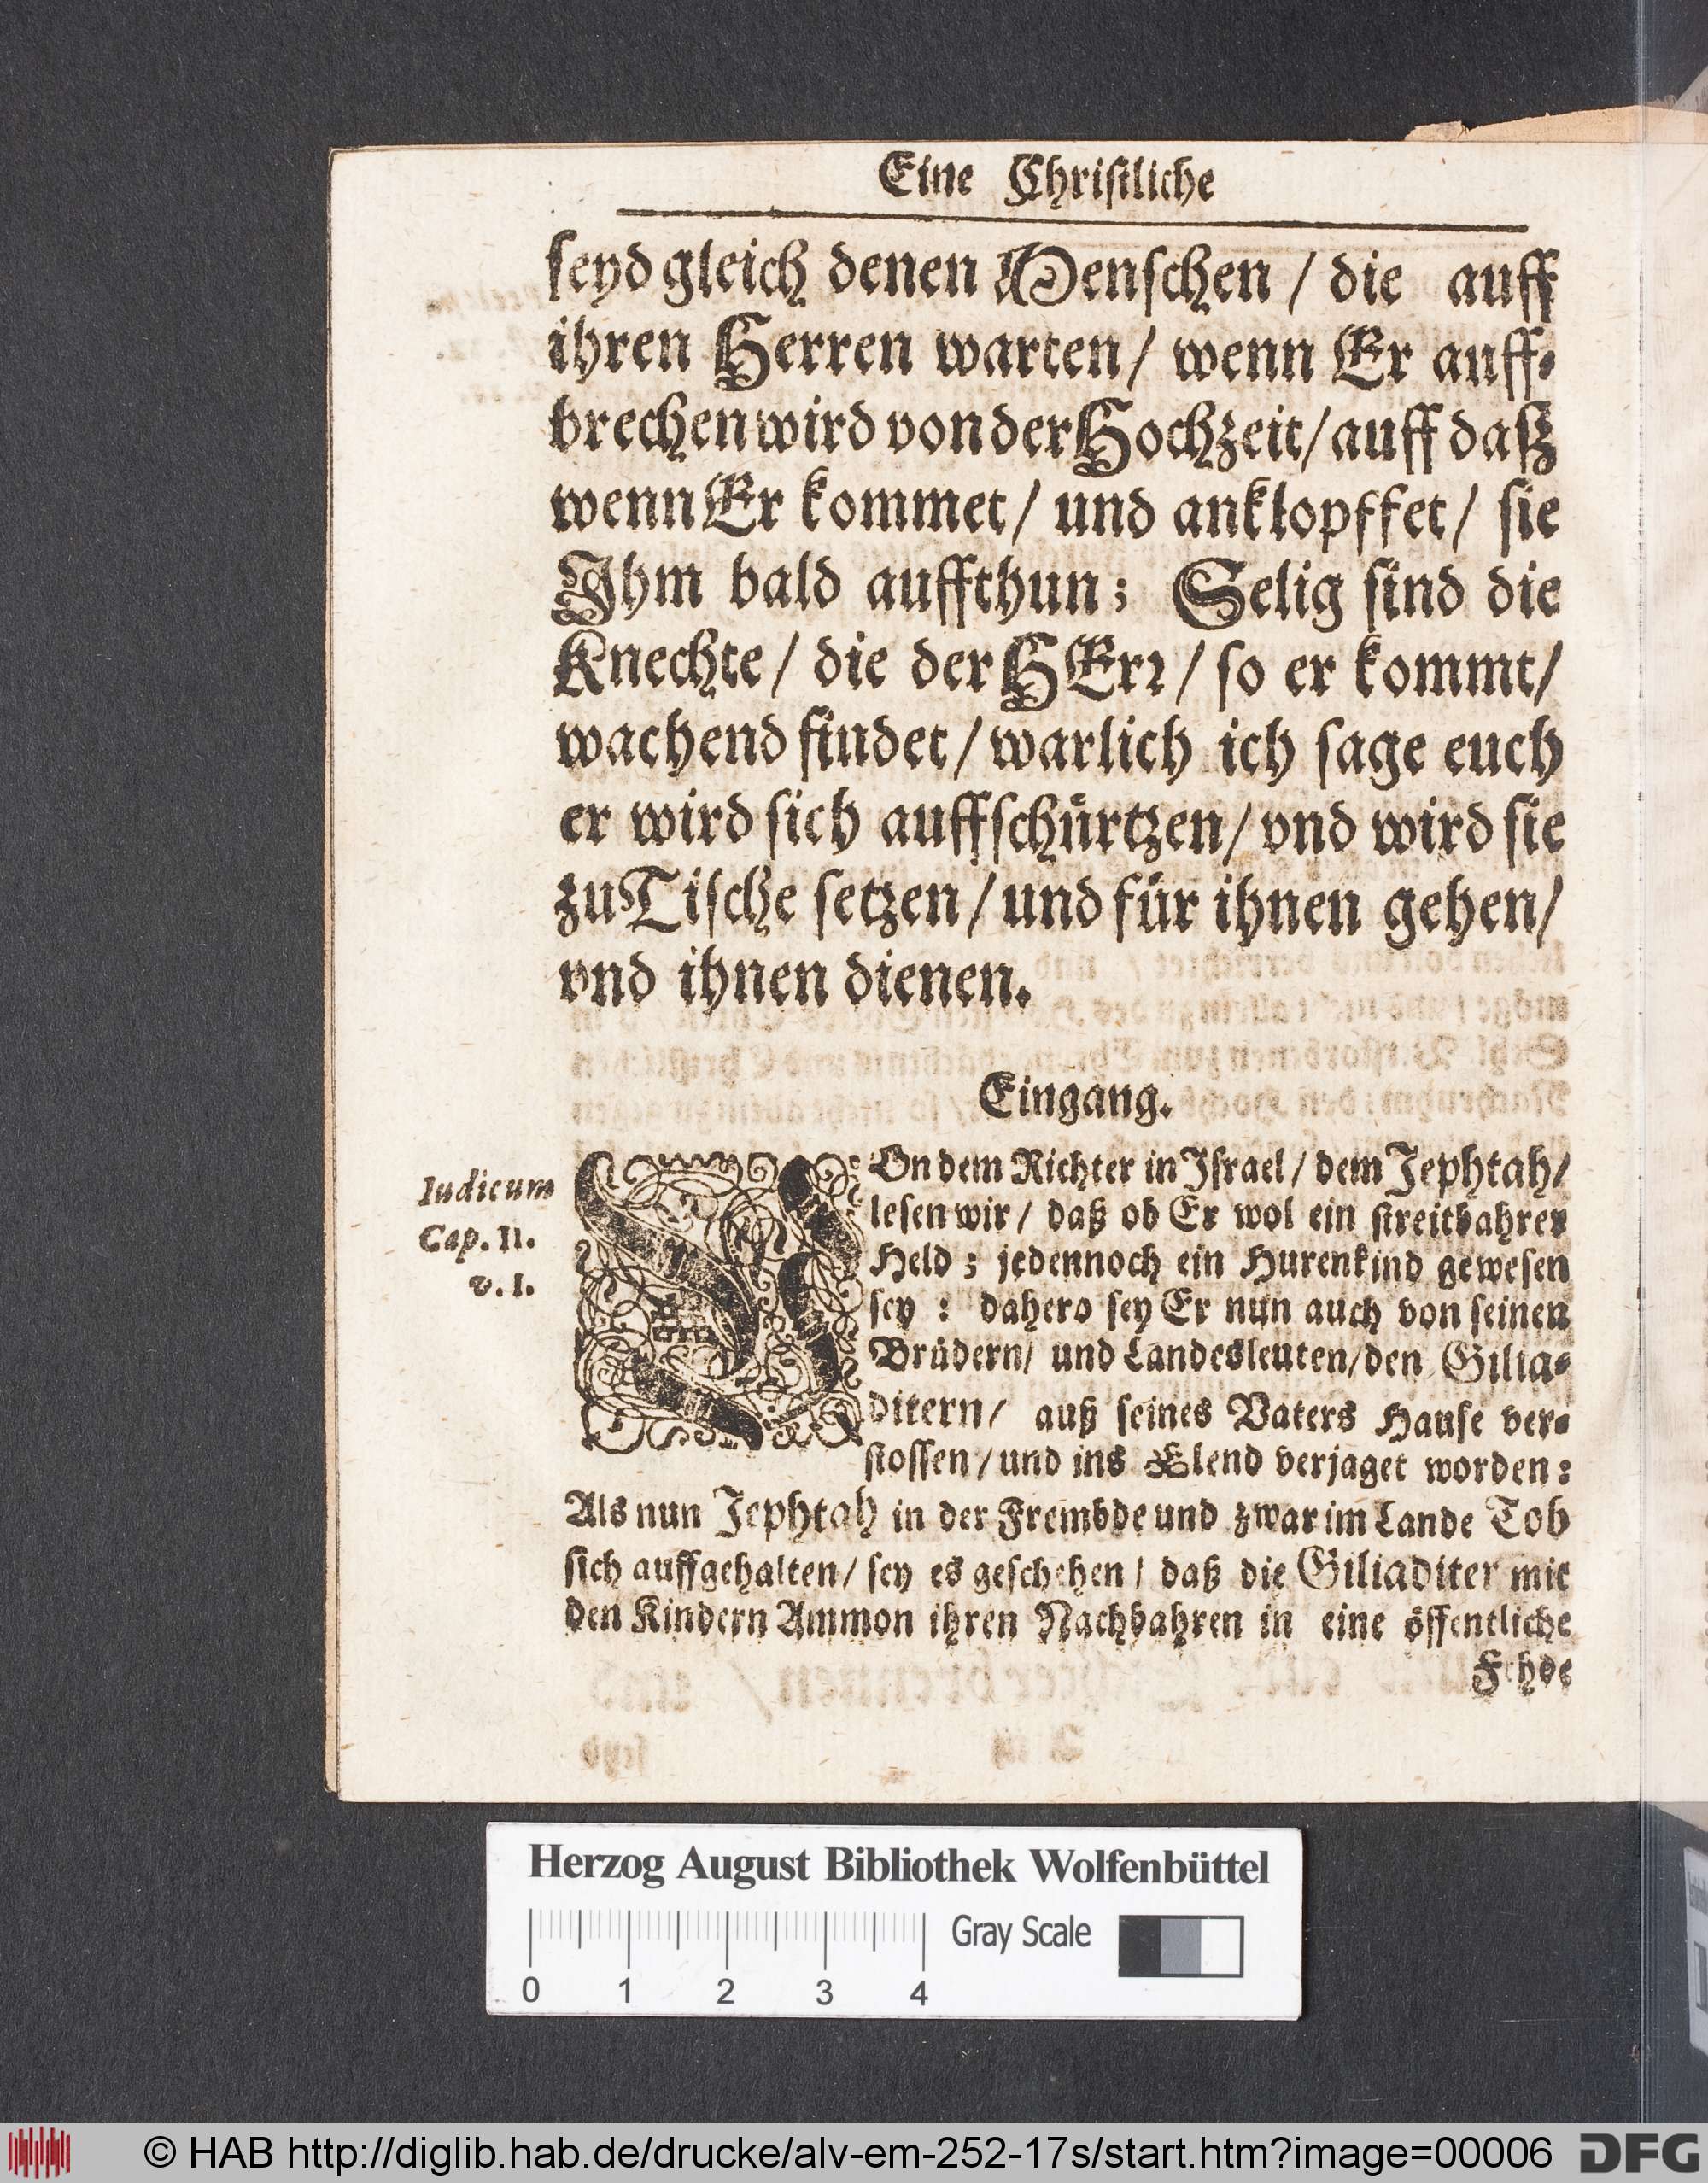 Eine Christliche
seyd gleich denen Menschen / die auff
ihren Herren warten / wenn Er auff-
brechen wird von der Hochzeit / auff daß
wenn Er kommet / und anklopffet / sie
Ihm bald auffthun; Selig sind die
Knechte / die der HErr / so er kommt /
wachend findet / warlich ich sage euch
er wird sich auffschürtzen / vnd wird sie
zu Tische setzen / und für ihnen gehen /
vnd ihnen dienen.
Eingang.
Iudicum
Cap. 11.
v. 1.
VOn dem Richter in Israel / dem Jephtah /
lesen wir / daß ob Er wol ein streitbahrer
Held; jedennoch ein Hurenkind gewesen
sey: dahero sey Er nun auch von seinen
Brüdern / und Landesleuten / den Gilia-
ditern / auß seines Vaters Hause ver-
stossen / und ins Elend verjaget worden:
Als nun Jephtah in der Frembde und zwar im Lande Tob
sich auffgehalten / sey es geschehen / daß die Giliaditer mit
den Kindern Ammon ihren Nachbahren in eine öffentliche
Fehde
Herzog August Bibliothek Wolfenbüttel
Gray Scale
0 1 2 3 4
© HAB http://diglib.hab.de/drucke/alv-em-252-17s/start.htm?image=00006
DFG